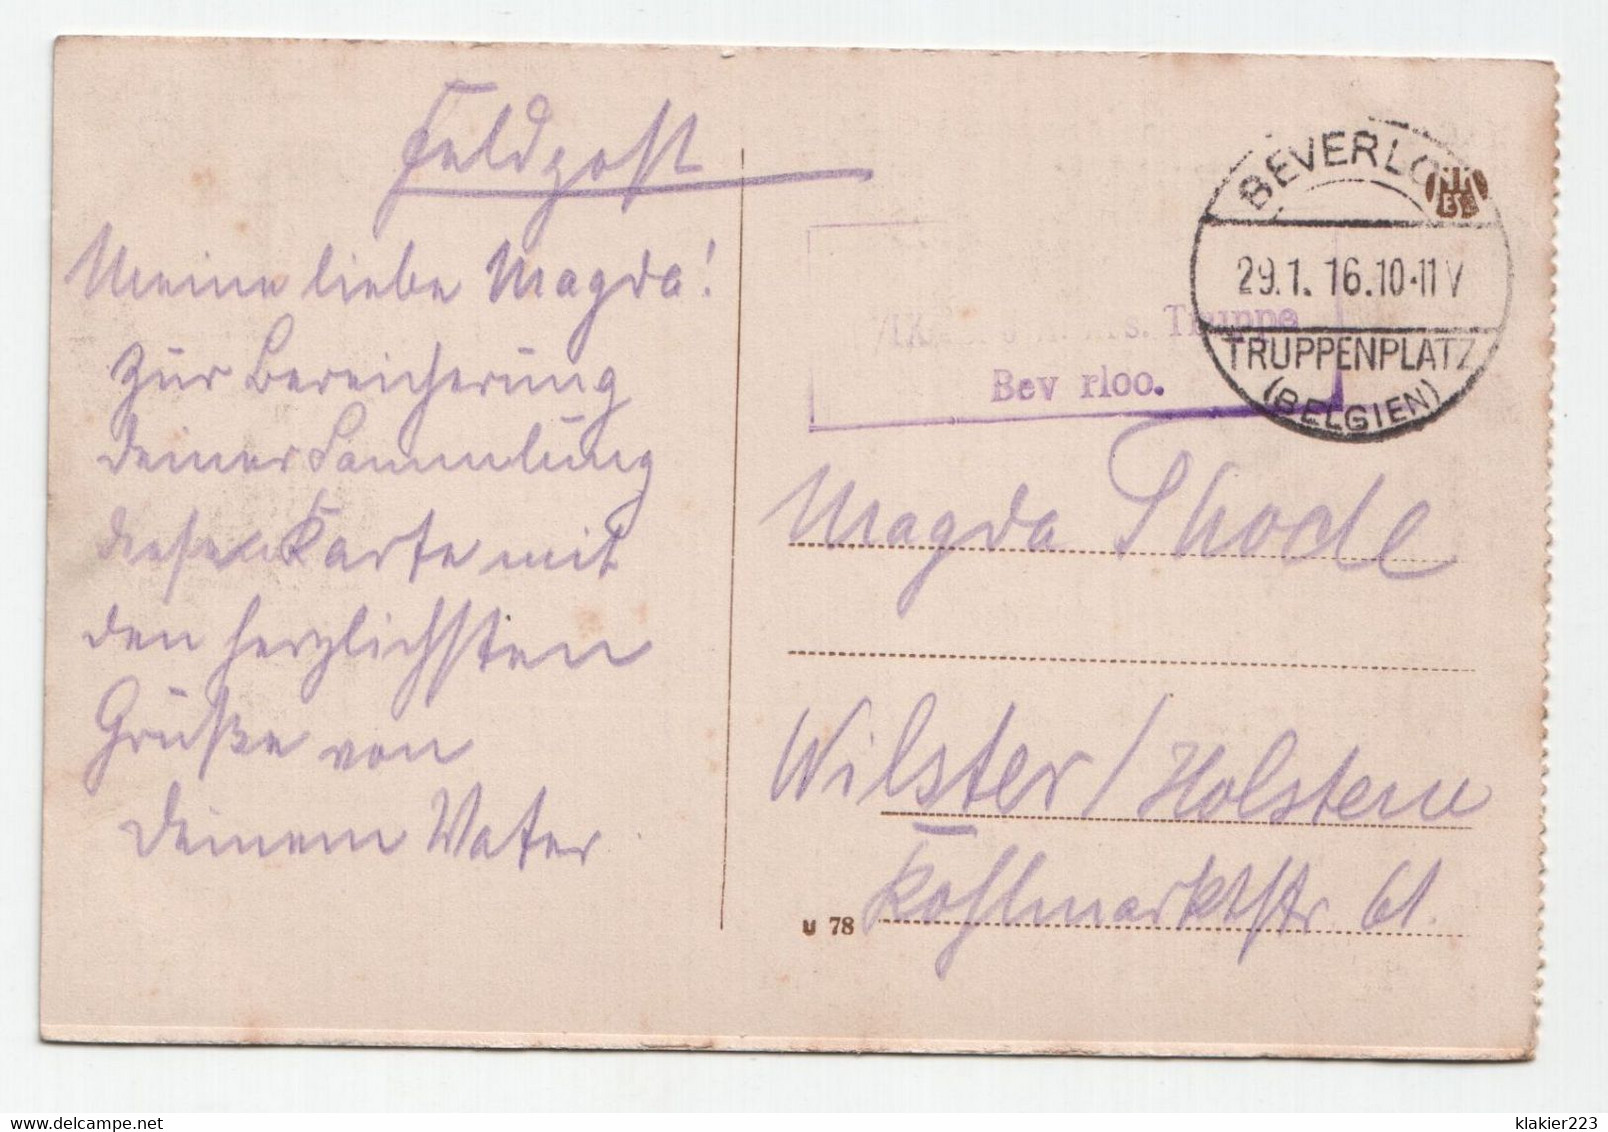 Feldpost
Meine liebe Magda!
Zur Bereicherung
deiner Sammlung
diese Karte mit
den herzlichsten
Grüße von
deinem Vater
BEVERLO
29.1.16.10-11V
TRUPPENPLATZ
(BELGIEN)
Truppe
Bev rloo.
Magda Thode
Wilster/Holstein
Kohlmarktstr 61.
u 78
delcampe.net
klakier223